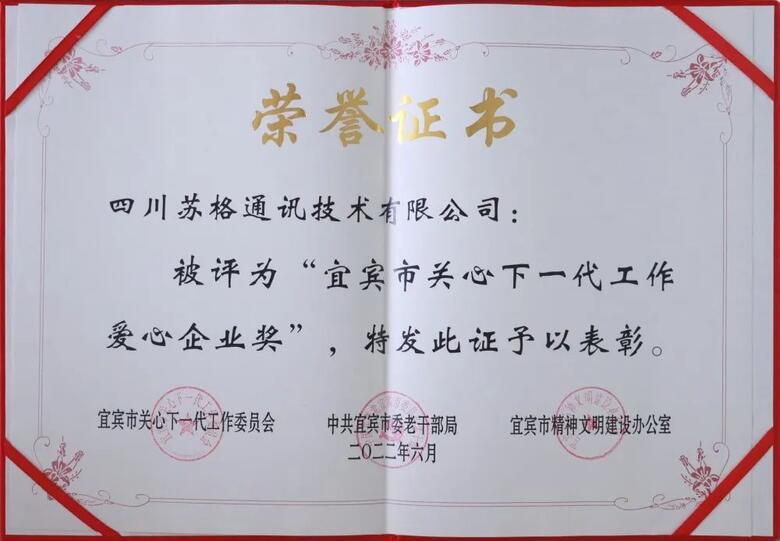 荣誉证书
四川苏格通讯技术有限公司：
被评为“宜宾市关心下一代工作
爱心企业奖”，特发此证予以表彰。
宜宾市关心下一代工作委员会 中共宜宾市委老干部局 宜宾市精神文明建设办公室
二〇二二年六月